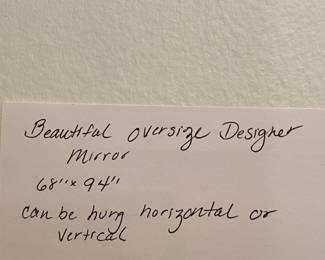 Beautiful oversize Designer
mirror
68"x 94"
can be hung horizontal or
vertical